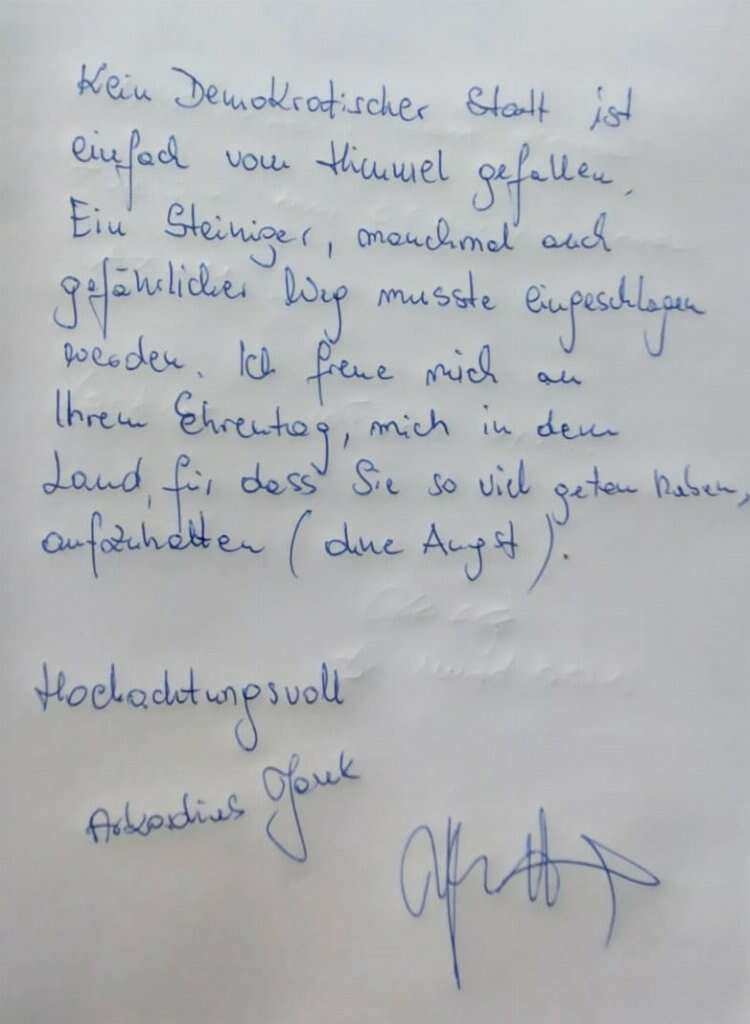 Kein Demokratischer Staat ist
einfach vom Himmel gefallen.
Ein Steiniger, manchmal auch
gefährlicher Weg musste eingeschlagen
werden. Ich freue mich an
Ihrem Ehrentag, mich in dem
Land, für dass Sie so viel getan haben,
aufzuhalten (ohne Angst).
Hochachtungsvoll
Arkadius